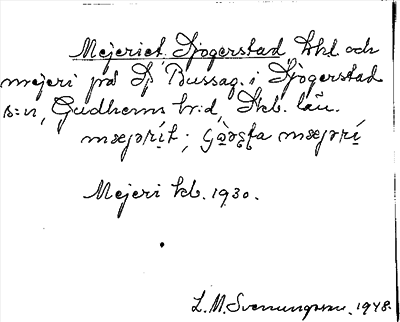 Mejeriet, Sjogerstad hhl och
mejeri på Sp. Bussag. i Sjogerstad
s:n, Gudhems hr:d, Skb. län.
mæjərít; mæjərí
Mejeri kb. 1930.
L. M. Svenungsson. 1948.